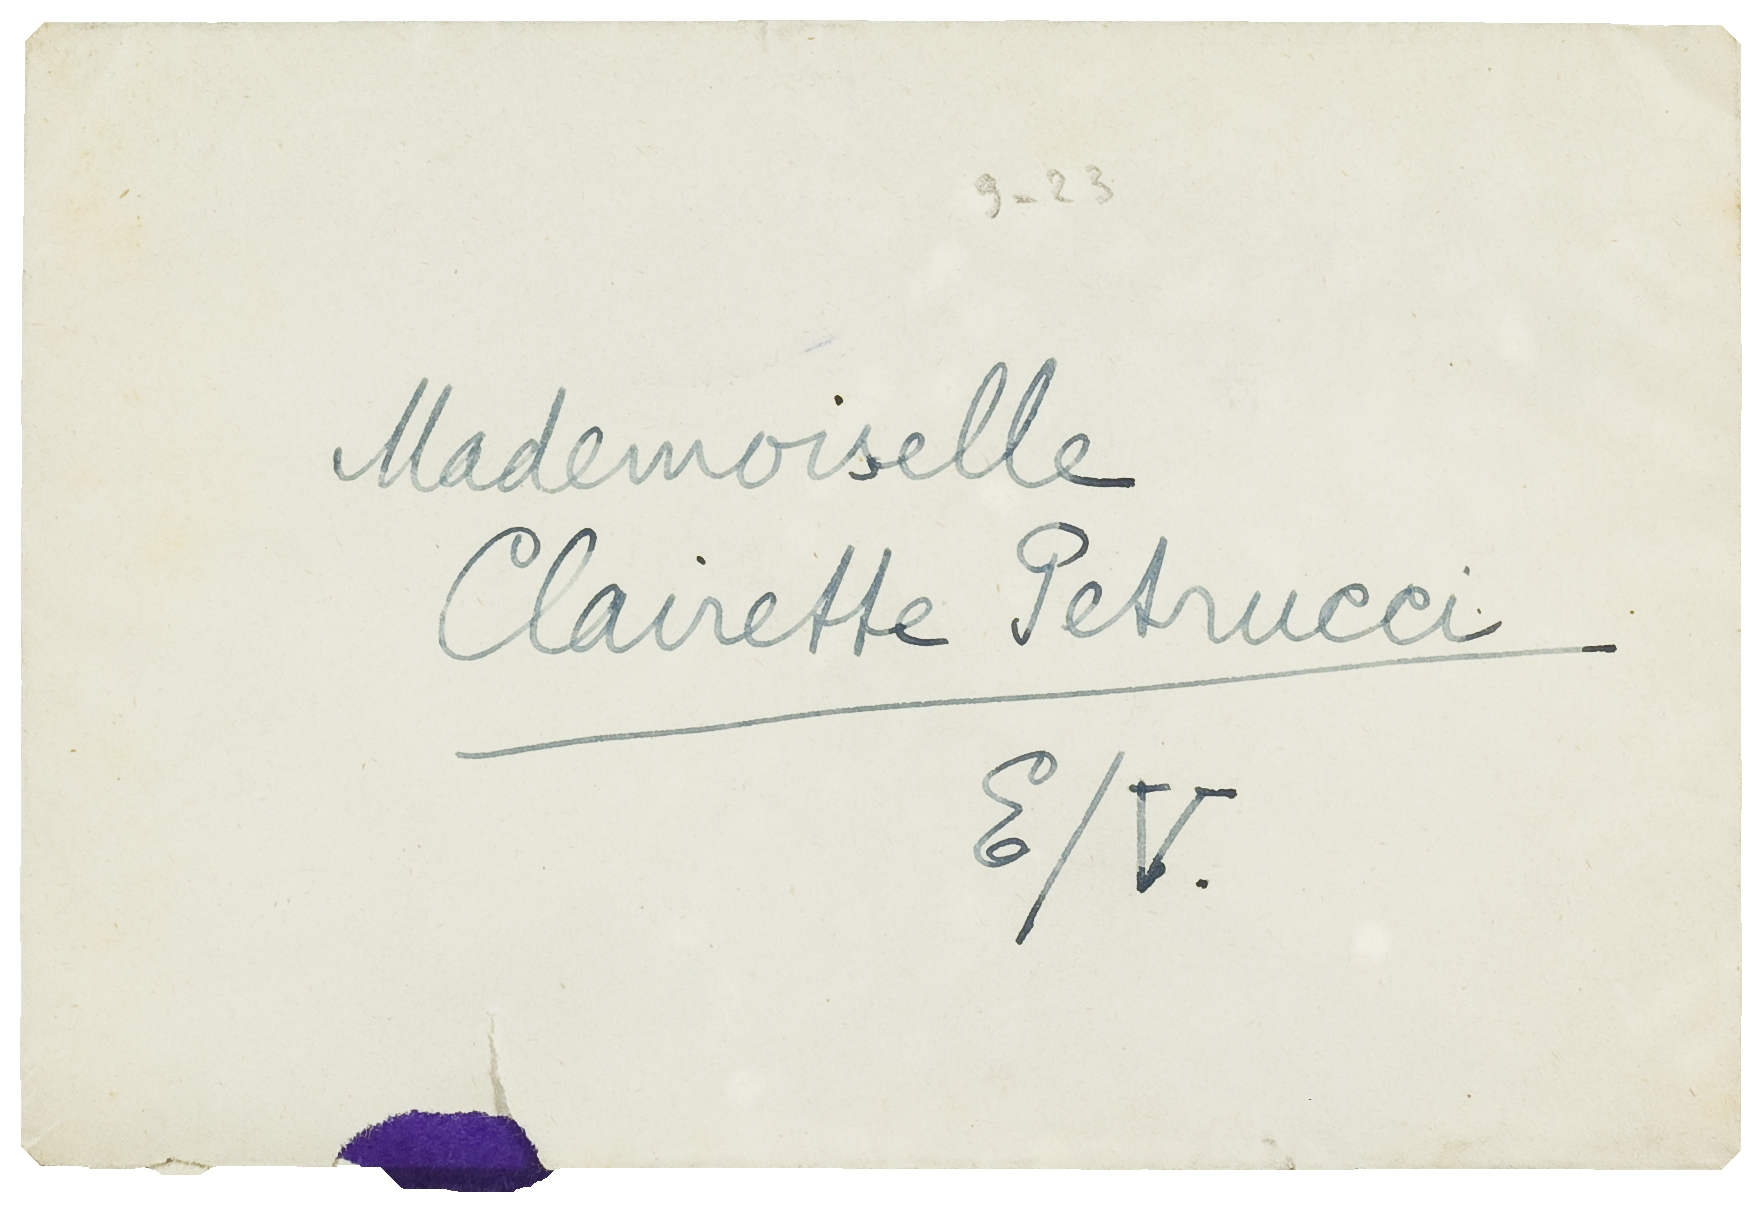 9-23
Mademoiselle
Clairette Petrucci
E/V.